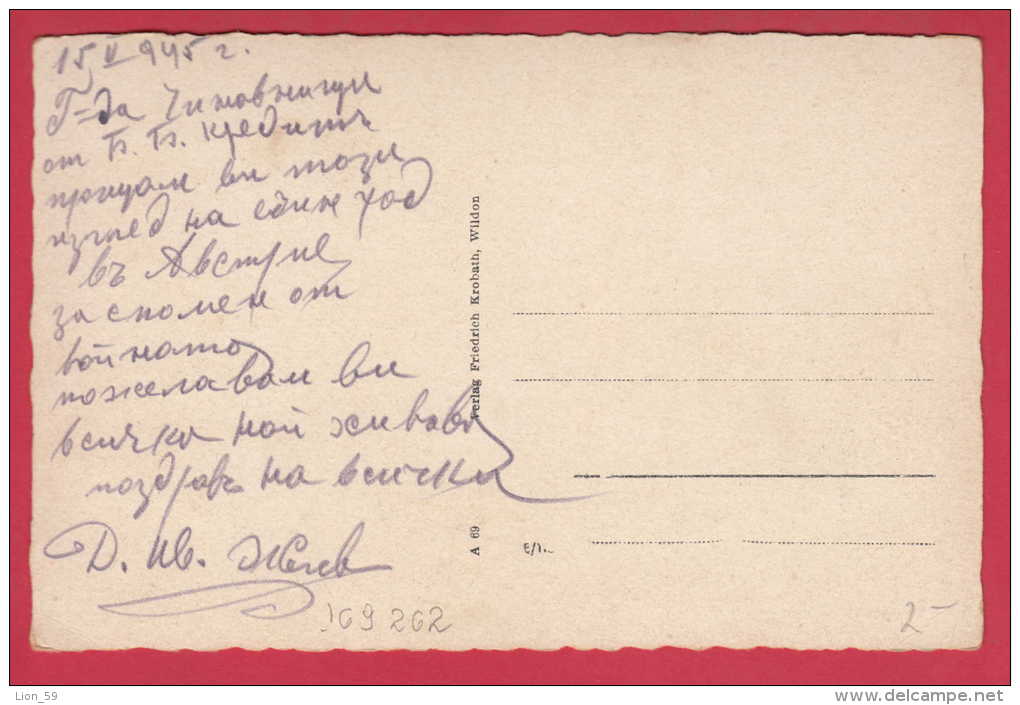 15 V 945 г.
Г-да Чиновници
от Б. Б. Кредитъ
пращам ви този
изглед на един ход
въ Австрие
за спомен от
войната
пожелавам ви
всичко най хубаво
поздравъ на всички
Д. Ив. Желев
Verlag Friedrich Krobath, Wildon
A 69
E/1..
169 262
2-
Lion_59
www.delcampe.net